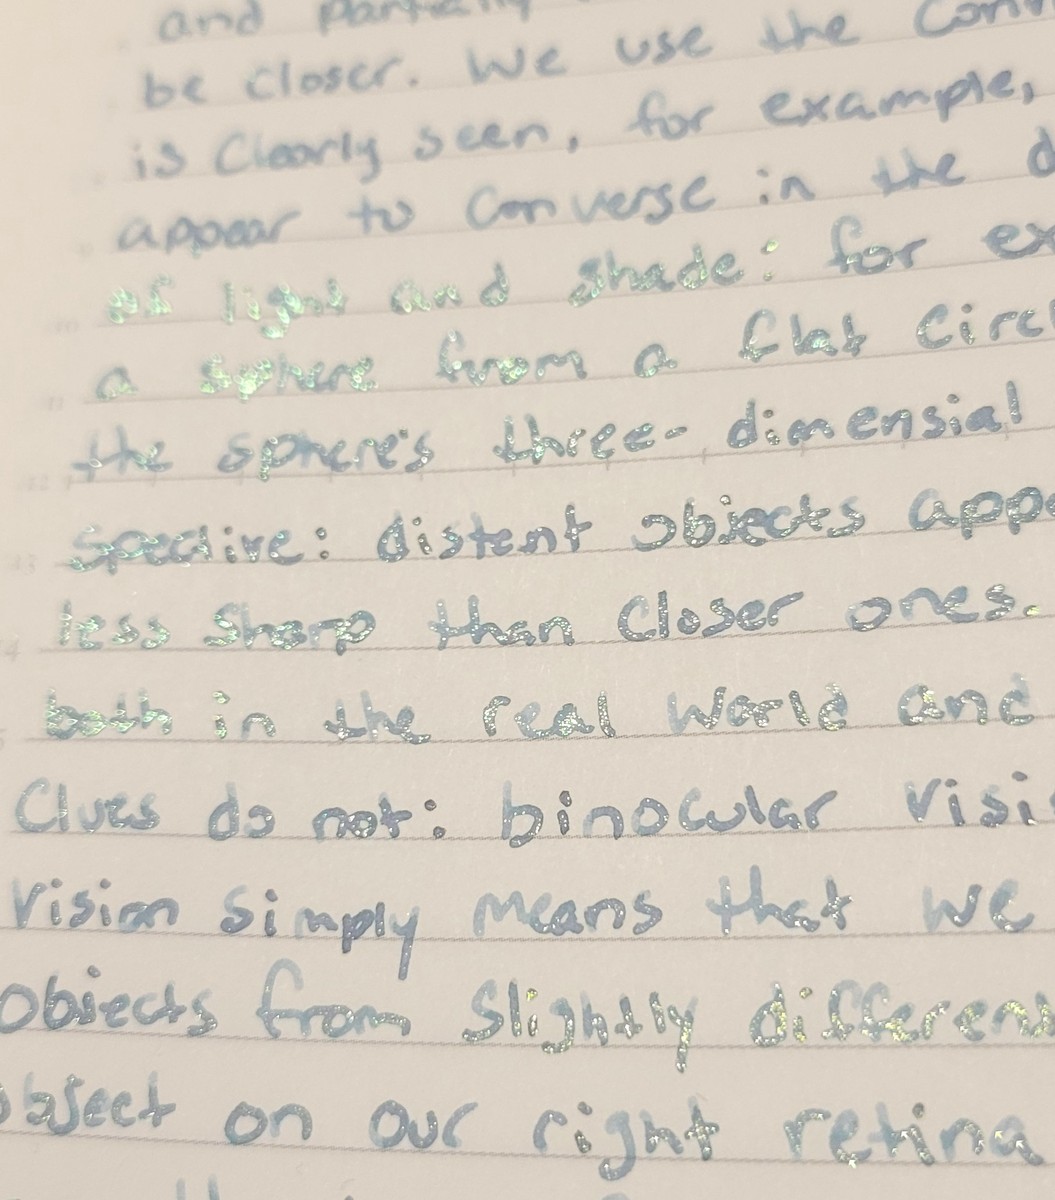 and
be closer. We use the
is Clearly seen, for example,
appear to Converse in the
of light and shade: for ex
a sphere from a flat Circl
the sphere's three-dimensial
spective: distent objects appe
less Sharp than Closer ones.
both in the real World and
Clues do not: binocular Visi
Vision Simply means that we
Objects from Slightly different
object on our right retina